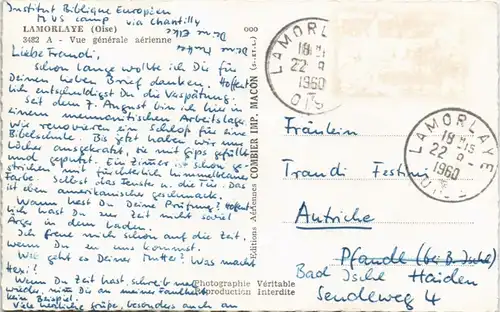 Institut Biblique Européen
MVS camp via Chantilly
LAMORLAYE (Oise)
3482 A - Vue générale aérienne
000
Deine Elke
Liebe Traudi,
Schon lange wollte ich Dir für
Deinen lieben Brief danken. Hoffent-
lich entschuldigst Du die Verspätung.
Seit dem 7. August bin ich hier in
einem mennonitischen Arbeitslager.
Wir renovieren ein Schloß für eine
Bibelschule. Bis jetzt haben wir nur
Löcher ausgekratzt, sie mit Gips gefüllt
und geputzt. Ein Zimmer ist schon ge-
strichen mit fürchterlich himmelblauer
Farbe. Selbst das Fenster u. die Tür. Das
ist eben amerikanische Geschmack.
Wann hast Du Deine Prüfung? Hoffent-
lich hast Du zur Zeit nicht soviel
Ärger in dem baden.
Ich freue mich schon auf die Zeit
wenn Du zu uns kommst.
Wie geht es Deiner Mutter? Was macht
Hexi?
Wenn Du Zeit hast, schreib mal
wieder, nimm Dir an meiner Faulheit
kein Beispiel.
Viele herzliche Grüße, besonders auch an
Deine Mutter
Editions Aériennes COMBIER IMP. MACON (S.-et-L.)
Photographie Véritable
Reproduction Interdite
LAMORLAYE
18 H15
22 - 9
1960
OISE
LAMORLAYE
18 H15
22 - 9 -
1960
OISE
Fräulein
Traudi
Autriche
Pfandl (bei B. Ischl)
Bad Ischl Haiden
Sendeweg 4